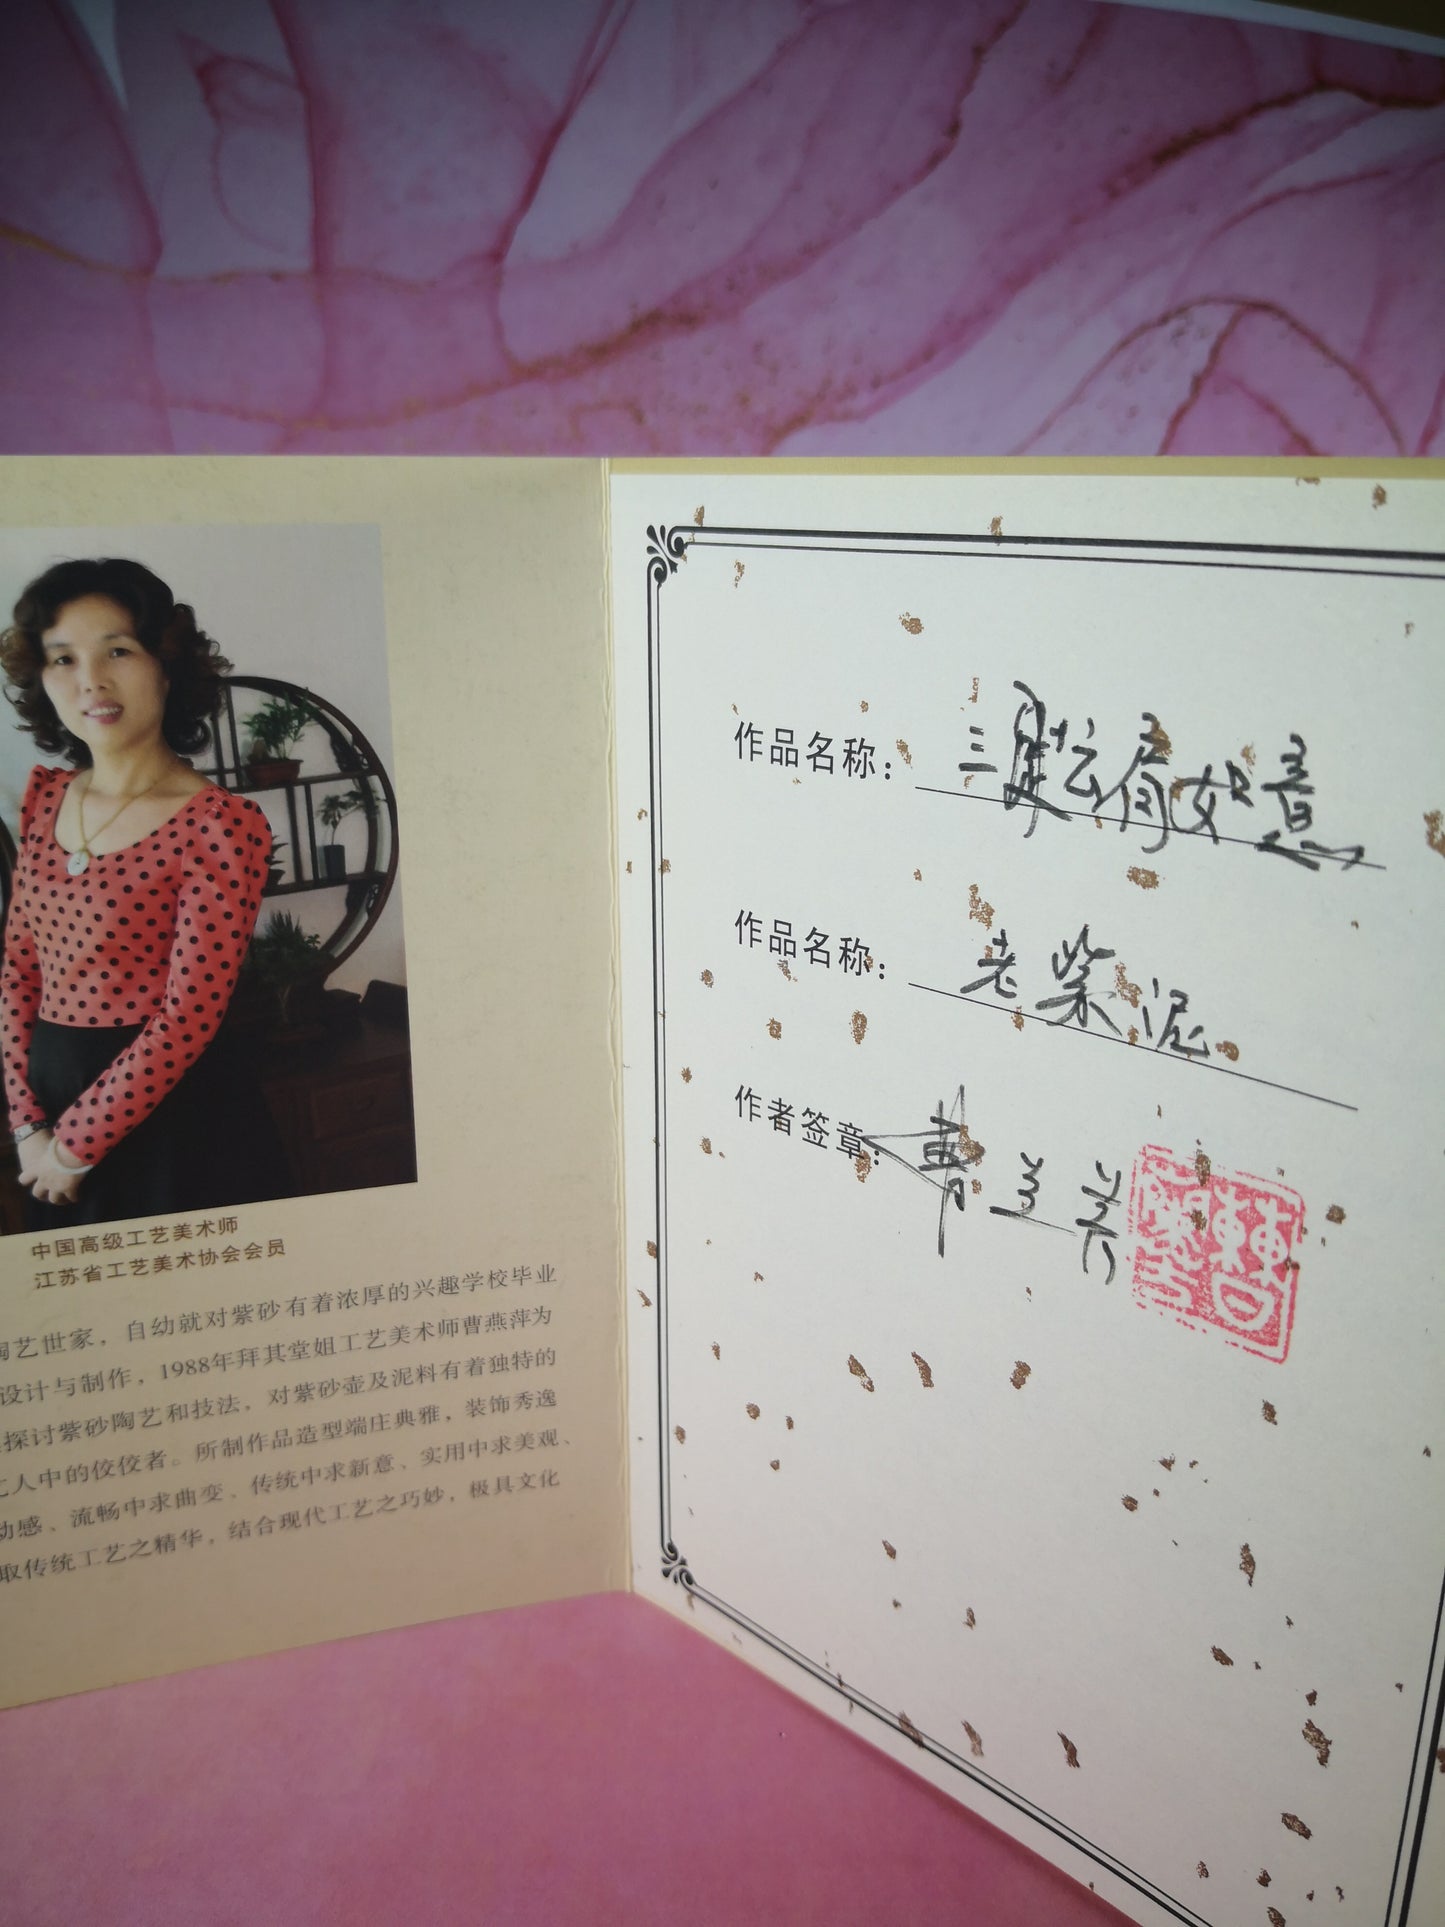 中国高级工艺美术师
江苏省工艺美术协会会员
陶艺世家，自幼就对紫砂有着浓厚的兴趣学校毕业
设计与制作，1988年拜其堂姐工艺美术师曹燕萍为
探讨紫砂陶艺和技法，对紫砂壶及泥料有着独特的
人中的佼佼者。所制作品造型端庄典雅，装饰秀逸
动感、流畅中求曲变、传统中求新意、实用中求美观、
取传统工艺之精华，结合现代工艺之巧妙，极具文化
作品名称： 三足云肩如意
作品名称： 老紫泥
作者签章： 曹